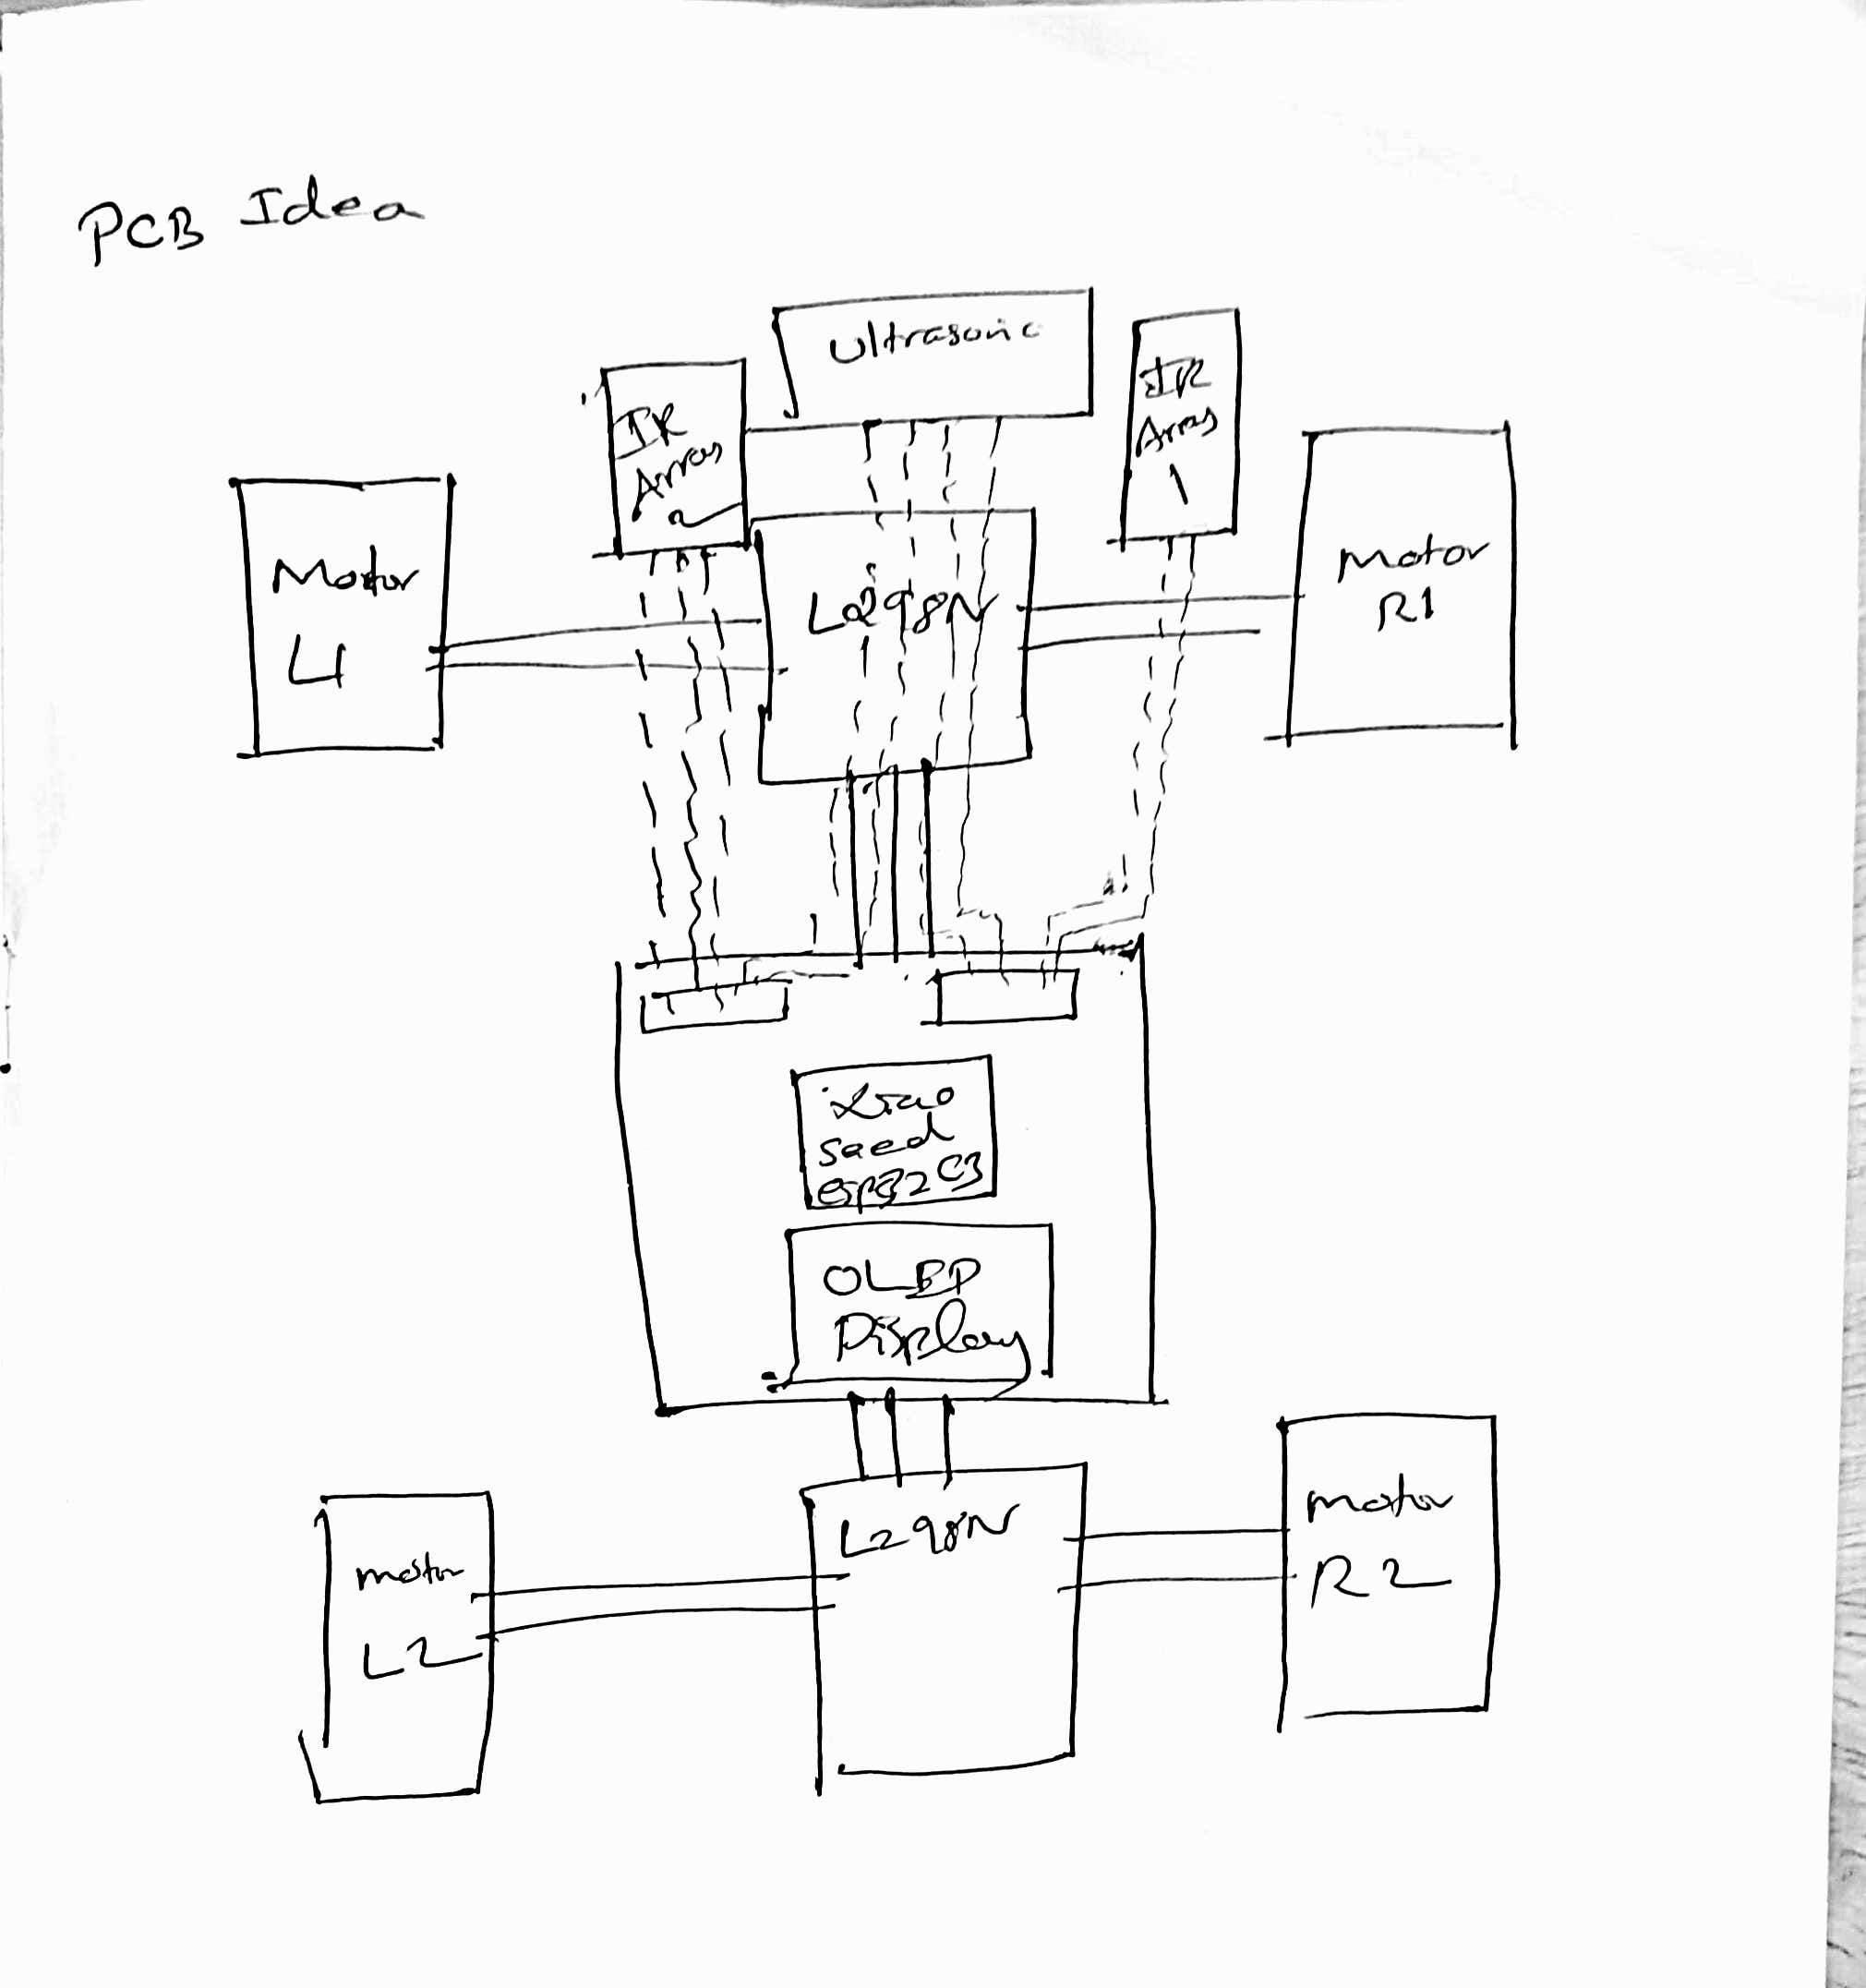 PCB Idea
Ultrasonic
IR
Array
1
IR
Array
2
Motor
L1
L298N
Motor
R1
Xiao
saed
esp32 C3
OLED
Display
L298N
motor
R2
motor
L2